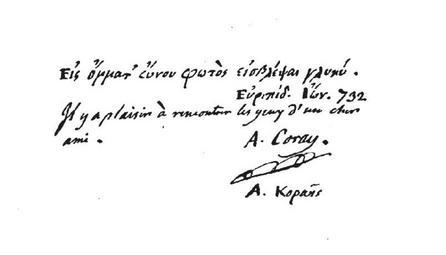 Εἰς ὄμματ' εὔνου φωτὸς εἰσβλέψαι γλυκύ.
Εὐριπίδ. Ἴων. 732
Il y a plaisir à rencontrer les yeux d'un cher
ami.
A. Coray.
Α. Κοραῆς